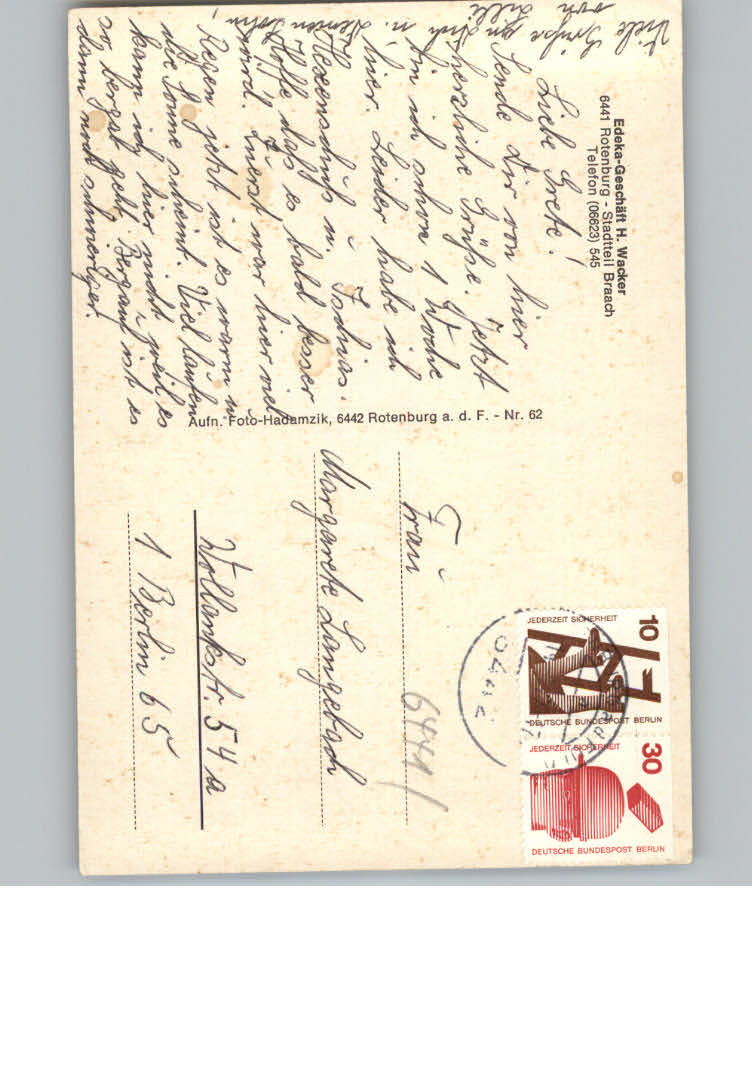 Edeka-Geschäft H. Wacker
6441 Rotenburg - Stadtteil Braach
Telefon (06623) 545
Liebe Grete!
Sende Dir von hier
herzliche Grüße. Jetzt
bin ich schon 1 Woche
hier. Leider habe ich
Hexenschuß u. Ischias.
Hoffe daß es bald besser
wird. Zuerst war hier viel
Regen jetzt ist es warm u.
die Sonne scheint. Viel laufen
kann ich hier nicht weil es
so bergat geht. Bergauf ist es
dann noch schwieriger.
Viele Grüße an Dich u. Deinen Sohn,
von Lilli
Aufn. Foto-Hadamzik, 6442 Rotenburg a. d. F. - Nr. 62
Frau
Margarete Langebach
Wollankstr. 54a
1 Berlin 65
6441
10
JEDERZEIT SICHERHEIT
DEUTSCHE BUNDESPOST BERLIN
30
JEDERZEIT SICHERHEIT
DEUTSCHE BUNDESPOST BERLIN